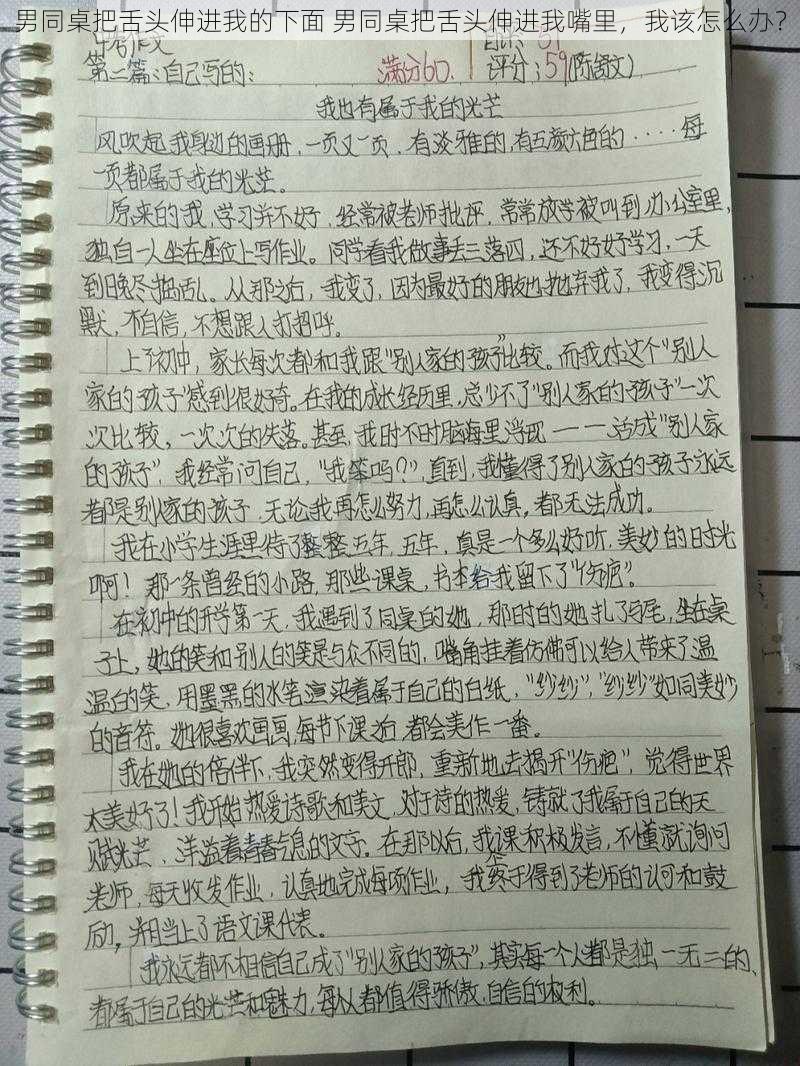 男同桌把舌头伸进我的下面 男同桌把舌头伸进我嘴里，我该怎么办？
中考作文
第二篇：自己写的： 满分60. 评分：59(陈舒文)
我也有属于我的光芒
风吹起我身边的画册，一页又一页，有淡雅的，有五颜六色的····每
一页都属于我的光芒。
原来的我，学习并不好，经常被老师批评，常常放学被叫到办公室里，
独自一人坐在座位上写作业。同学看我做事丢三落四，还不好好学习，一天
到晚尽捣乱。从那之后，我变了，因为最好的朋友也抛弃我了，我变得沉
默，不自信，不想跟人打招呼。
上了初中，家长每次都和我跟"别人家的孩子"比较。而我对这个"别人
家的孩子"感到很好奇。在我的成长经历里，总少不了"别人家的孩子"一次
次比较，一次次的失落。甚至，我时不时脑海里浮现——活成"别人家
的孩子"，我经常问自己，"我笨吗？"，直到，我懂得了别人家的孩子永远
都是别人家的孩子，无论我再怎么努力，再怎么认真，都无法成功。
我在小学生涯里待了整整五年，五年，真是一个多么好听，美妙的时光
啊！那一条曾经的小路，那些课桌，书本给我留下了"伤疤"。
在初中的开学第一天，我遇到了同桌的她，那时的她扎了马尾，坐在桌
子上，她的笑和别人的笑是与众不同的，嘴角挂着仿佛可以给人带来了温
温白的笑，用墨黑的水笔渲染着属于自己的白纸，"纱纱"，"纱纱"如同美妙
的音符。她很喜欢画画，每节下课后，都会美作一番。
我在她的倍伴下，我突然变得开郎，重新地去揭开"伤疤"，觉得世界
太美好了！我开始热爱诗歌和美文，对于诗的热爱，铸就了我属于自己的天
赋光芒，洋溢着青春气息的文字。在那以后，我课积极发言，不懂就询问
老师，每天收发作业，认真地完成每项作业，我终于得到了老师的认可和鼓
励，并且当上了语文课代表。
我永远都不相信自己成了"别人家的孩子"，其实每一个人都是独一无二的，
都属于自己的光芒和魅力，每人都值得骄傲，自信的权利。